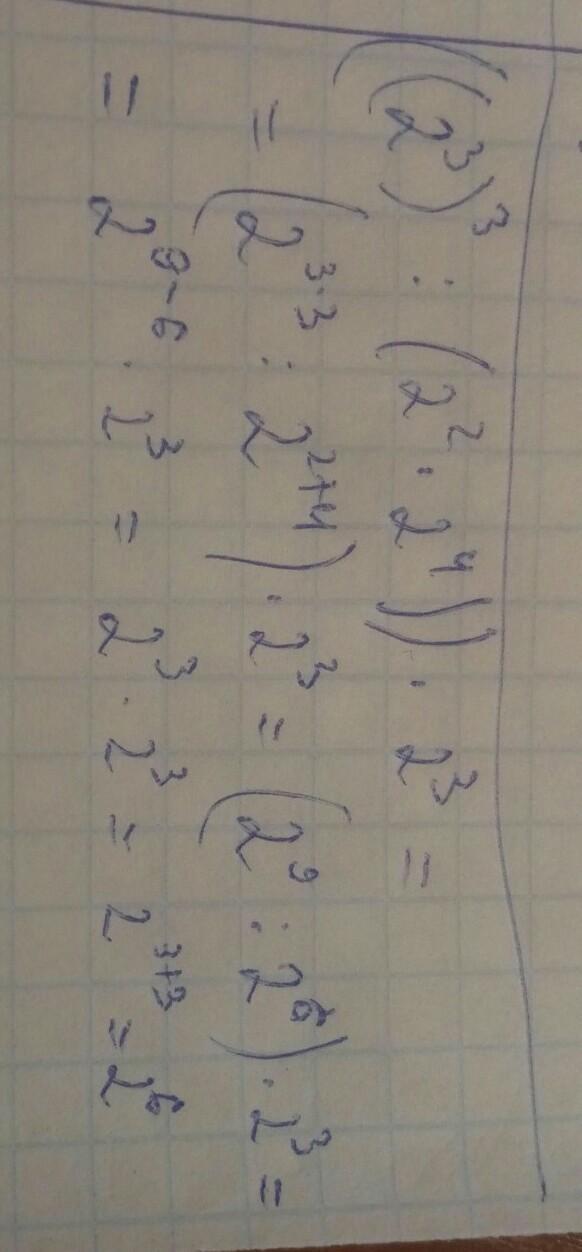 ((2³)³ : (2² · 2⁴)) · 2³ =
= (2³·³ : 2²⁺⁴) · 2³ = (2⁹ : 2⁶) · 2³ =
= 2⁹⁻⁶ · 2³ = 2³ · 2³ = 2³⁺³ = 2⁶